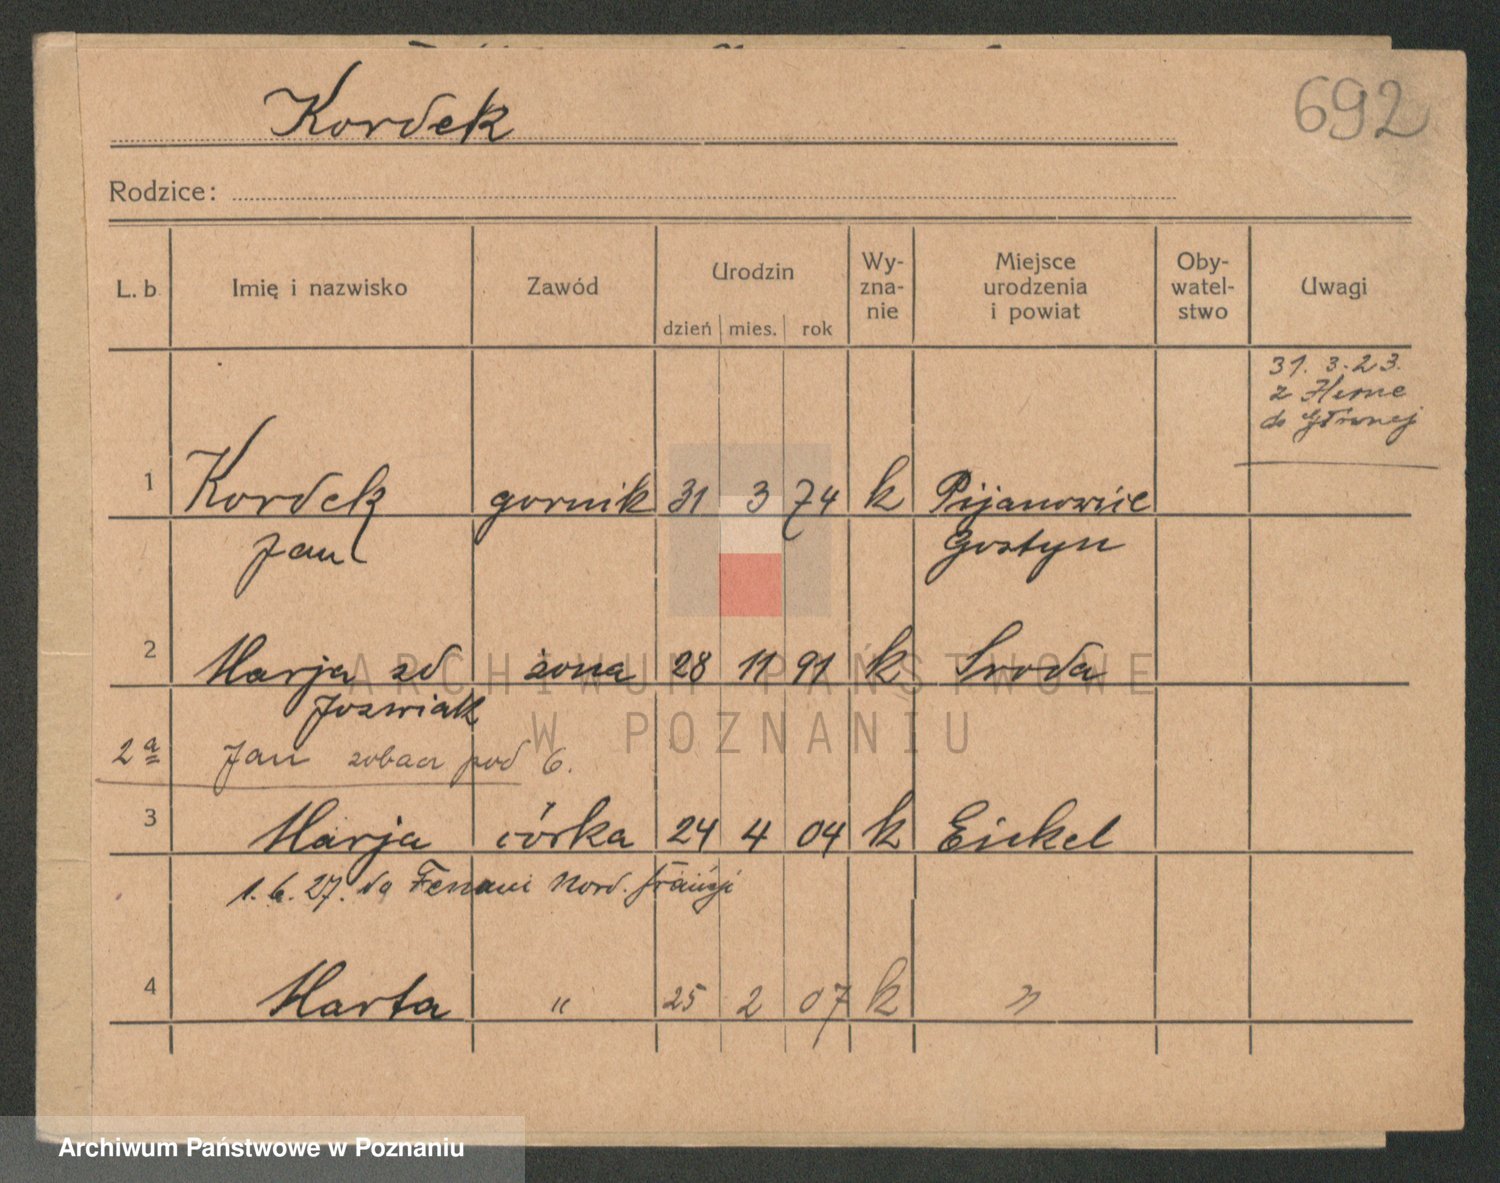 Kordek
692
Rodzice:
L. b Imię i nazwisko Zawód Urodzin dzień mies. rok Wy-zna-nie Miejsce urodzenia i powiat Oby-watel-stwo Uwagi
31. 3. 23.
z Herne
do Głównej
1 Kordek gornik 31 3 74 k Pijanowice
Jan Gostyn
2 Marja zd żona 28 11 91 k Sroda
Jozwiak
2a Jan zobacz pod 6.
3 Marja córka 24 4 04 k Eickel
1. 6. 27. do Nord. francji
4 Marta " 25 2 07 k "
ARCHIWUM PAŃSTWOWE
W POZNANIU
Archiwum Państwowe w Poznaniu